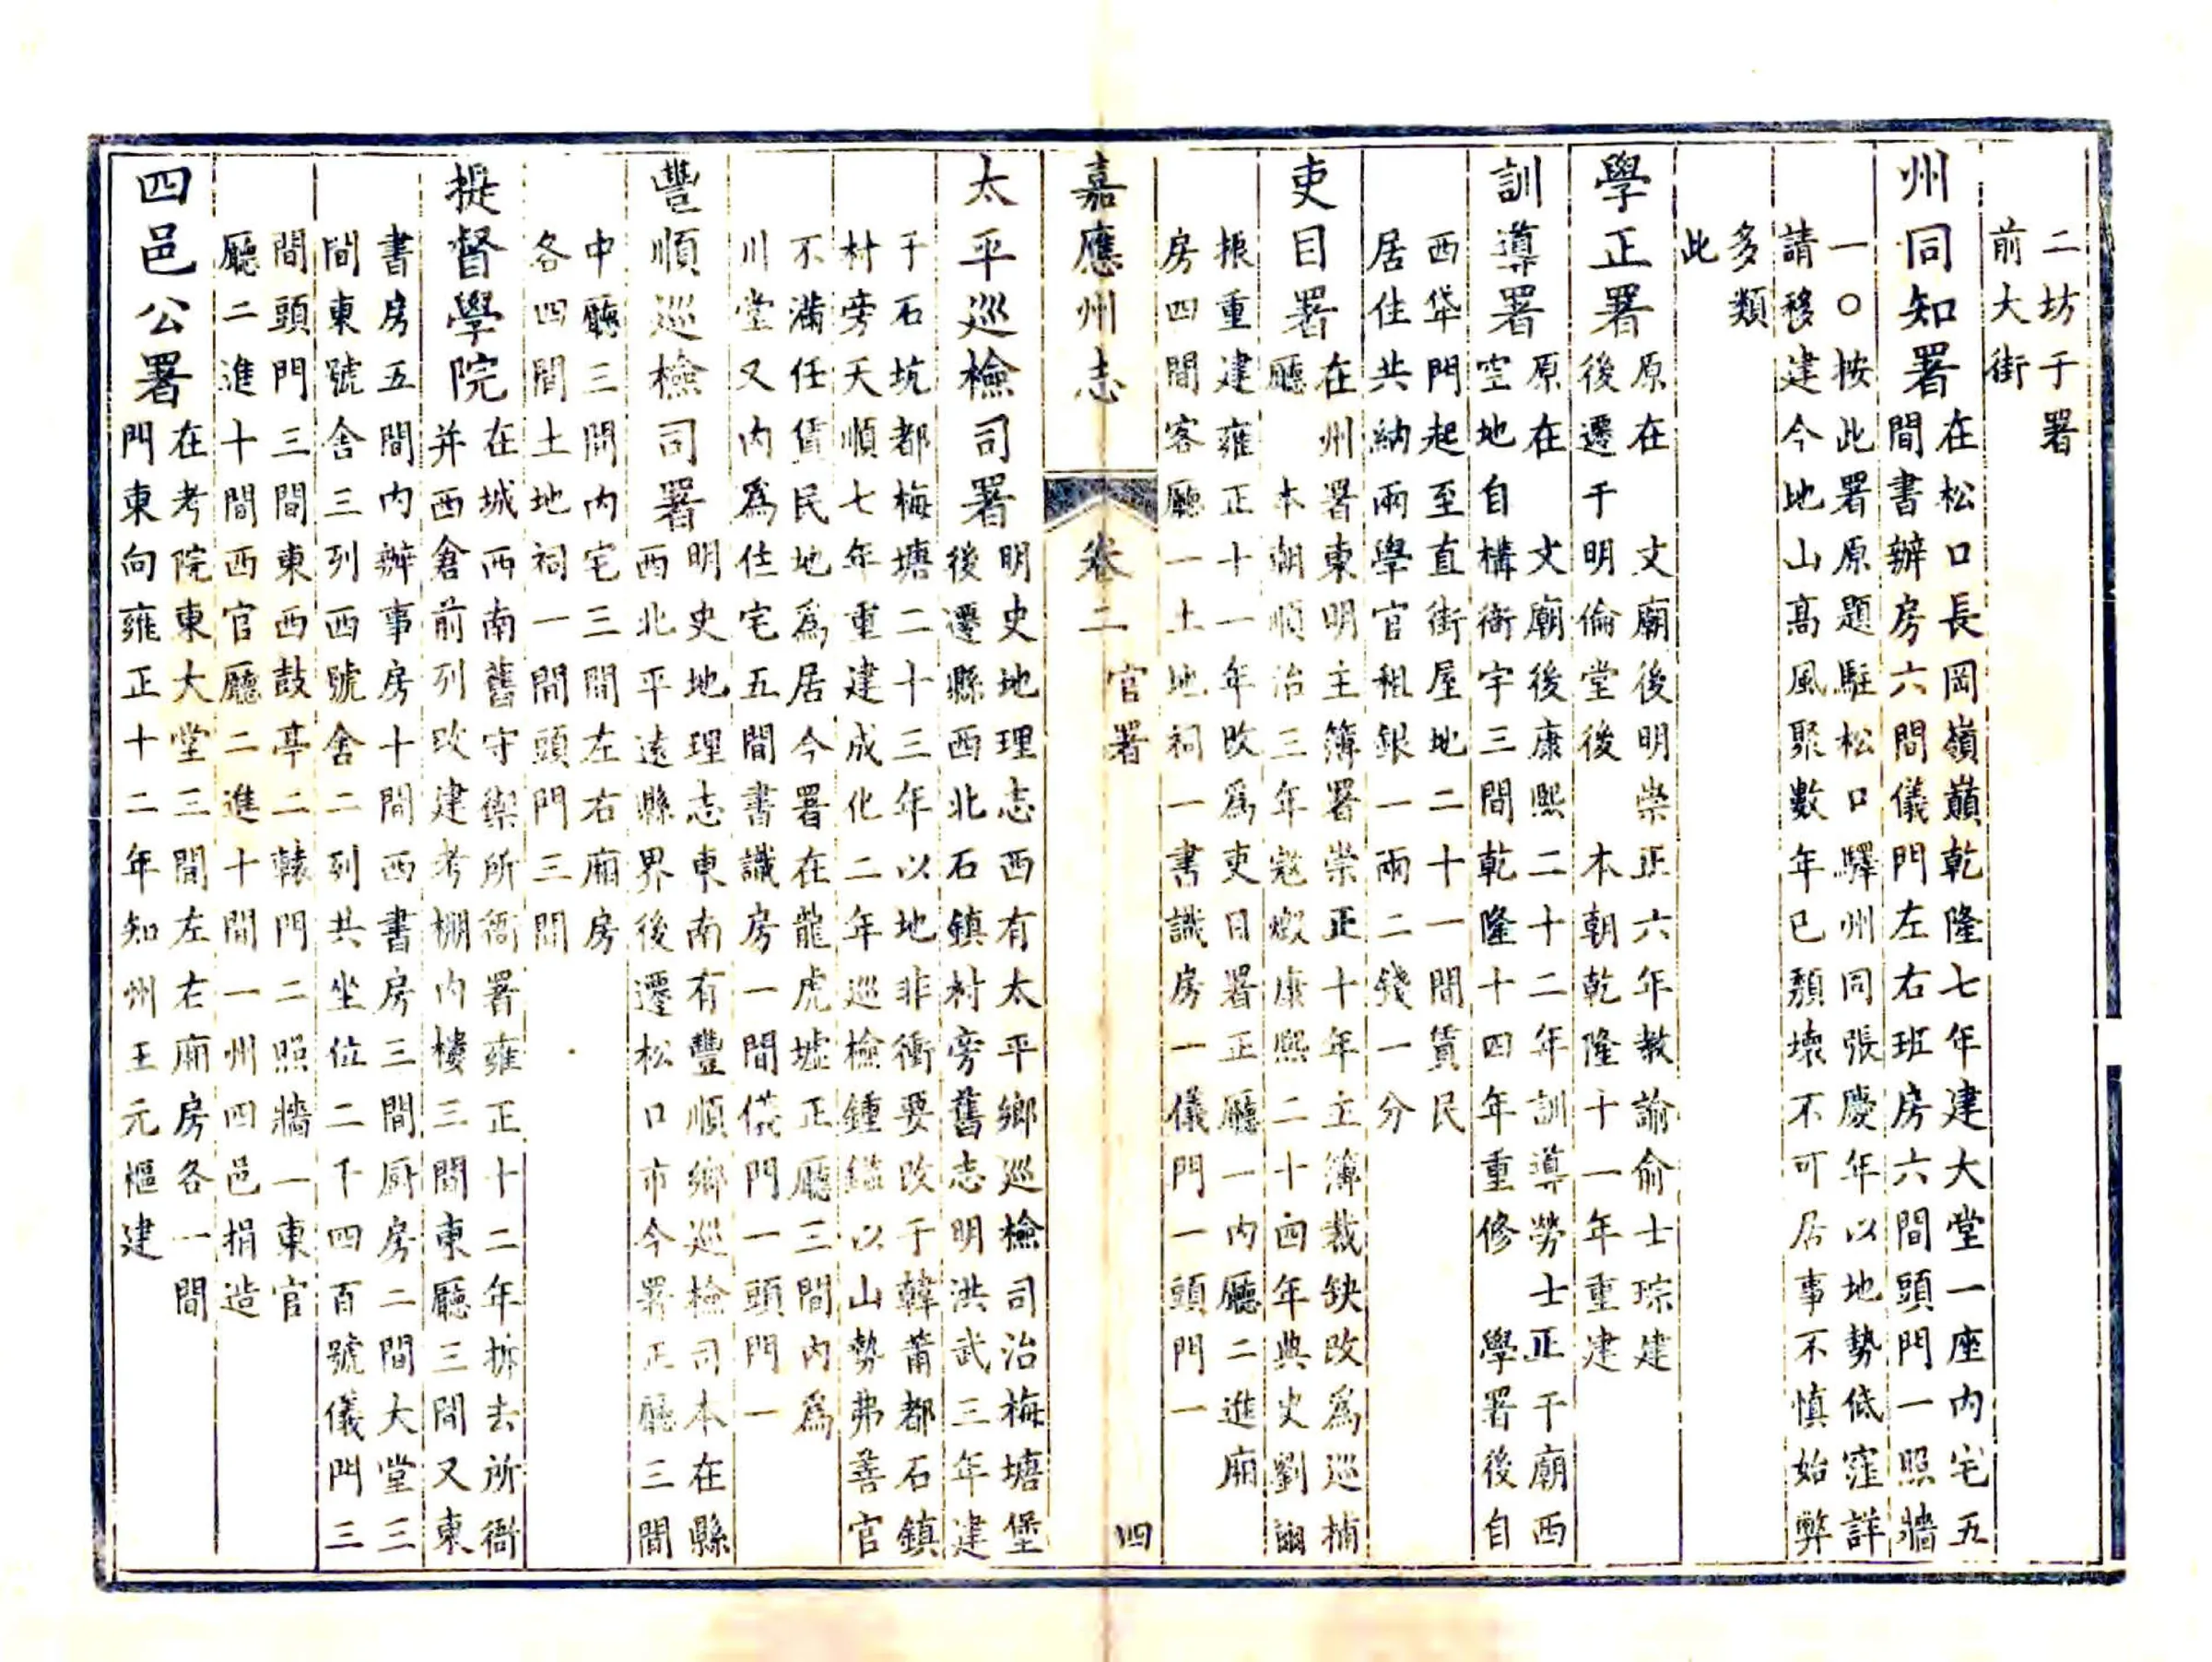 二坊于署
前大街
州同知署
在松口長岡嶺巔乾隆七年建大堂一座内宅五
間書辦房六間儀門左右班房六間頭門一照牆
一〇按此署原題駐松口驛州同張慶年以地勢低窪詳
請移建今地山高風聚數年已頽壞不可居事不慎始弊
多類
此
學正署
原在　文廟後明崇正六年教諭俞士琮建
後遷于明倫堂後　本朝乾隆十一年重建
訓導署
原在　文廟後康熙二十二年訓導勞士正于廟西
空地自構衙宇三間乾隆十四年重修　學署後自
西垈門起至直街屋地二十一間賃民
居住共納兩學官租銀一兩二錢一分
吏目署
在州署東明主簿署崇正十年主簿裁缺改爲巡捕
廳　本朝順治三年寇燬康熙二十四年典史劉嗣
振重建雍正十一年改爲吏目署正廳一内廳二進廂
房四間客廳一土地祠一書識房一儀門一頭門一
嘉應州志　卷二　官署　四
太平巡檢司署
明史地理志西有太平鄉巡檢司治梅塘堡
後遷縣西北石鎮村旁舊志明洪武三年建
于石坑都梅塘二十三年以地非衝要改于韓莆都石鎮
村旁天順七年重建成化二年巡檢鍾繼以山勢弗善官
不滿任賃民地爲居今署在龍虎墟正廳三間内爲
川堂又内爲住宅五間書識房一間儀門一頭門一
豐順巡檢司署
明史地理志東南有豐順鄉巡檢司本在縣
西北平遠縣界後遷松口市今署正廳三間
中廳三間内宅三間左右廂房
各四間土地祠一間頭門三間
提督學院
在城西南舊守禦所衙署雍正十二年拆去所衙
并西倉前列改建考棚内樓三間東廳三間又東
書房五間内辦事房十間西書房三間厨房二間大堂三
間東號舍三列西號舍二列共坐位二千四百號儀門三
間頭門三間東西鼓亭二轅門二照牆一東官
廳二進十間西官廳二進十間一州四邑捐造
四邑公署
在考院東大堂三間左右廂房各一間
門東向雍正十二年知州王元樞建